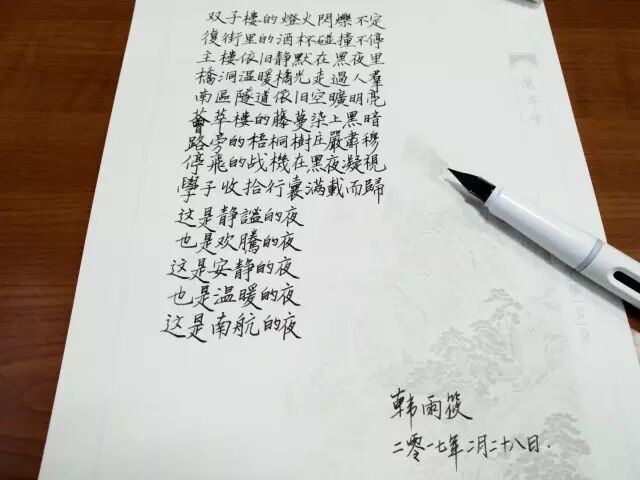 双子楼的燈火閃爍不定
復街里的酒杯碰撞不停
主楼依旧静默在黑夜里
橋洞温暖橘光走過人羣
南區隧道依旧空曠明亮
薈萃楼的藤蔓染上黑暗
路旁的梧桐樹庄嚴肅穆
停飛的战機在黑夜凝視
學子收拾行囊满載而歸
这是静謐的夜
也是欢騰的夜
这是安静的夜
也是温暖的夜
这是南航的夜
韩雨筱
二零一七年二月二十八日.